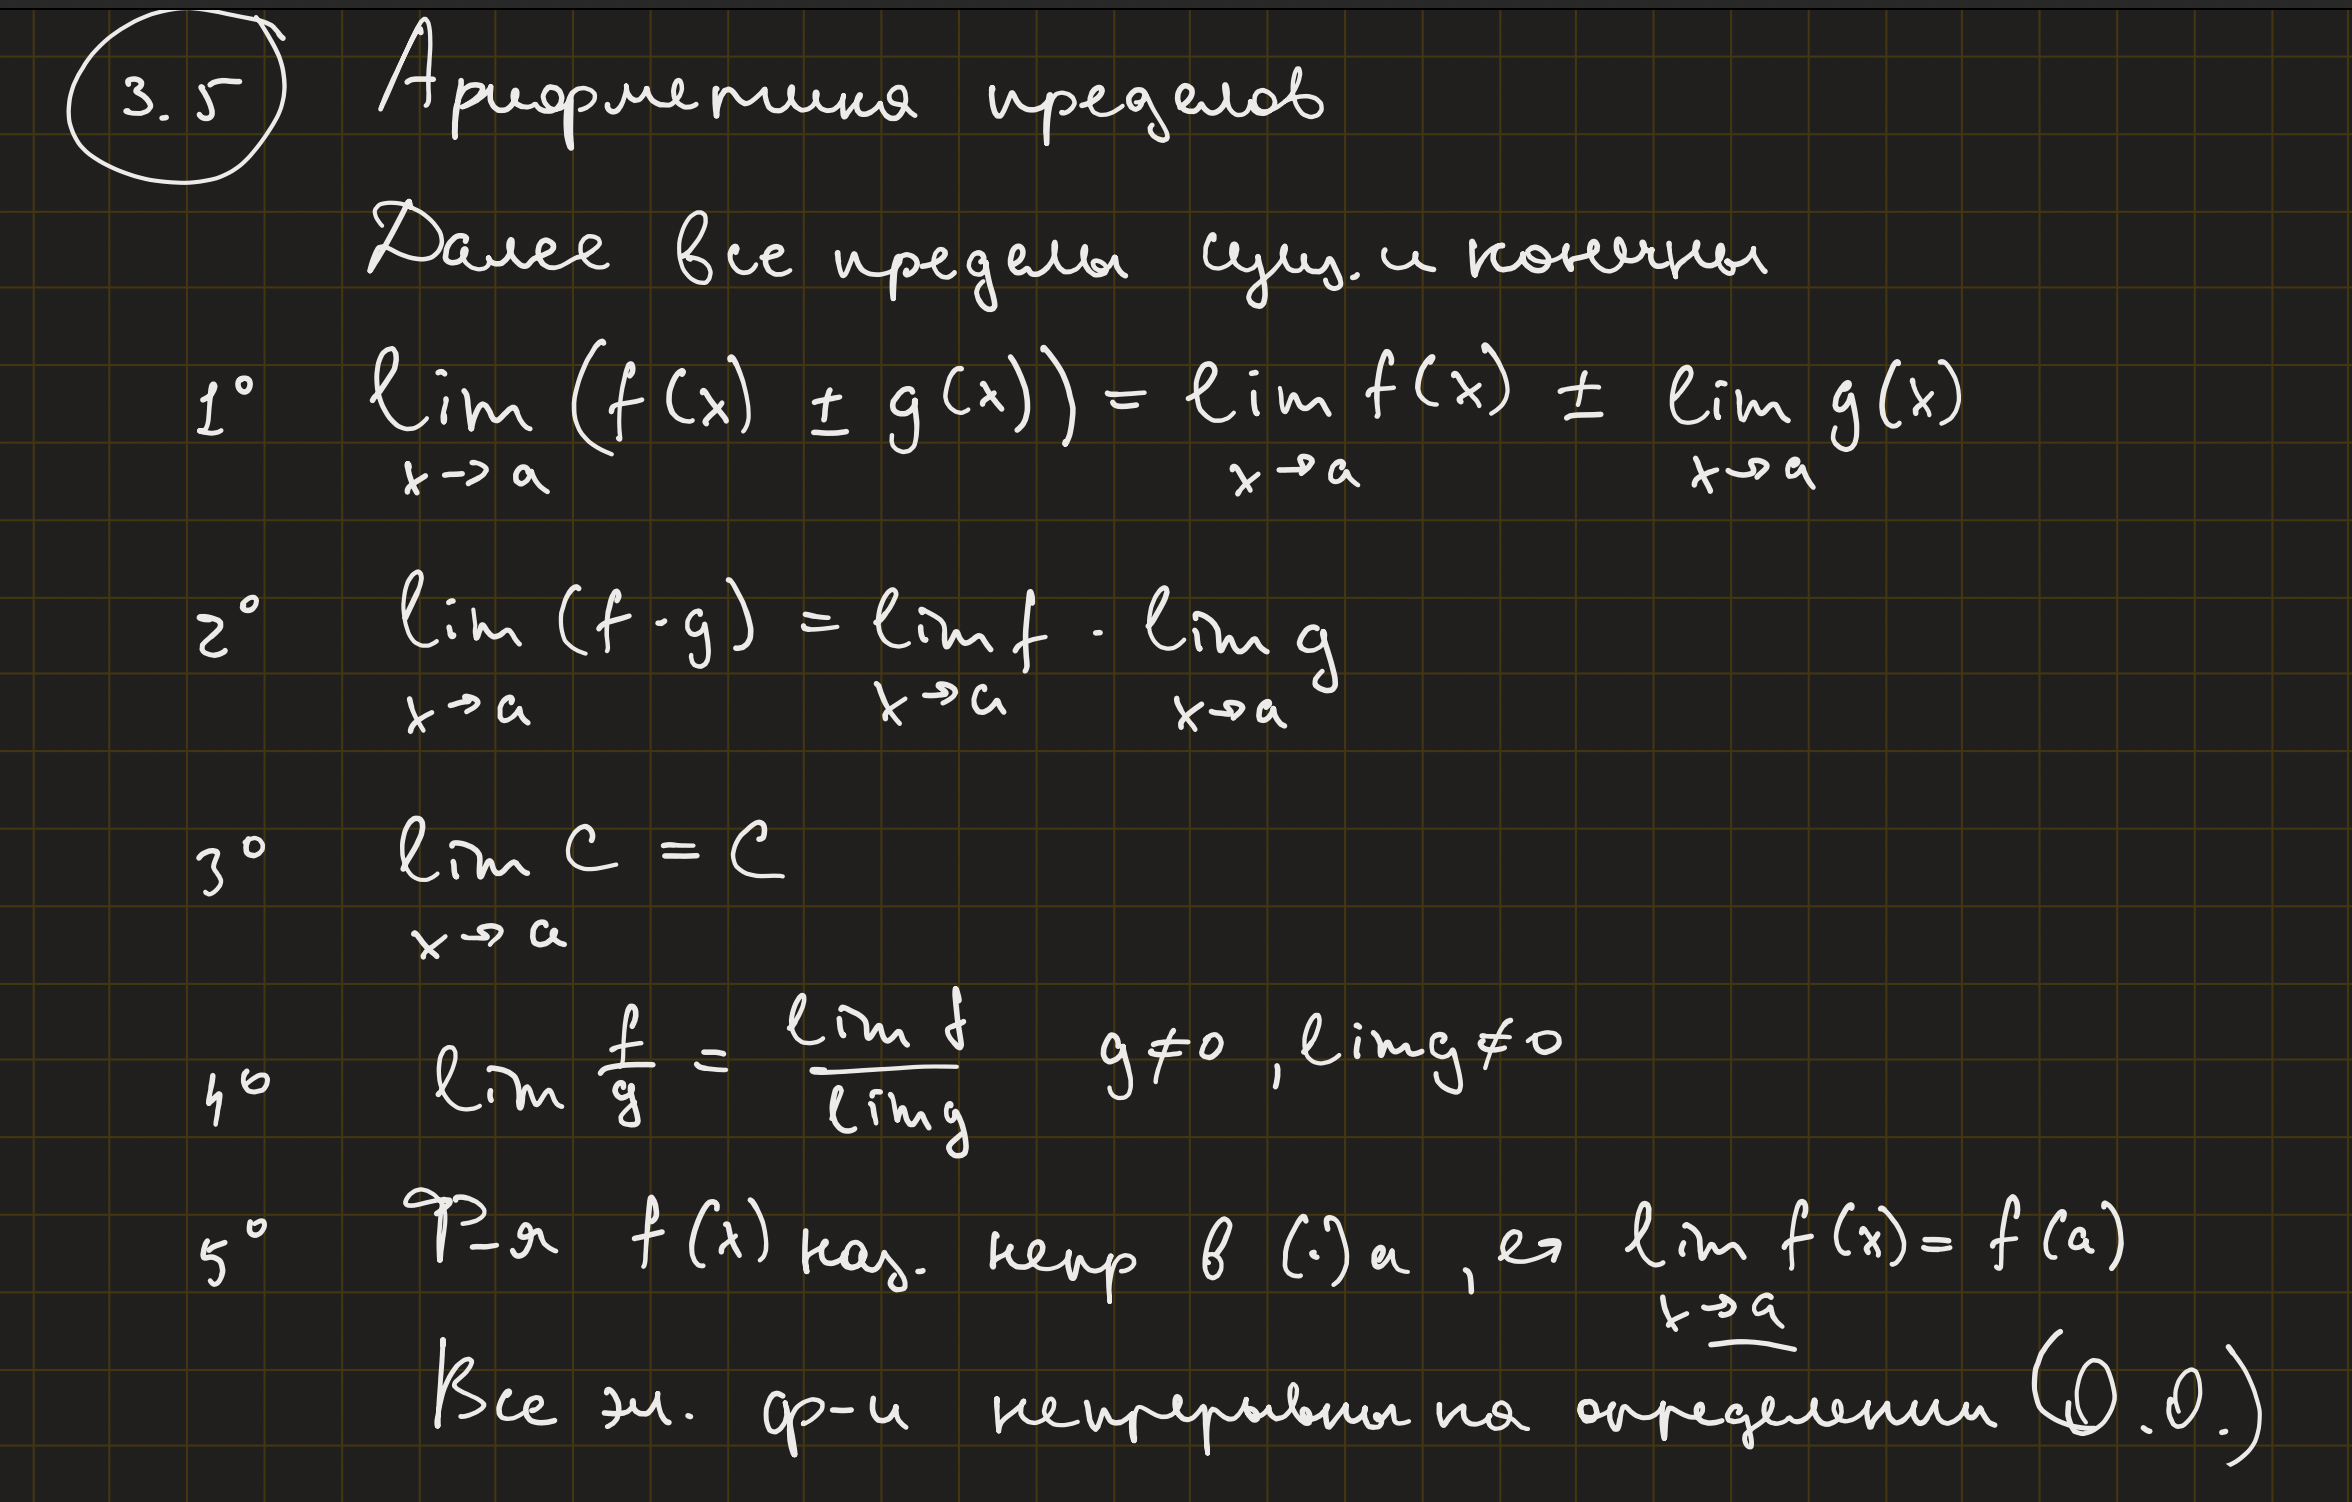 3.5 Арифметика пределов
Далее все пределы сущ. и конечны
1° lim (f(x) ± g(x)) = lim f(x) ± lim g(x)
x→a x→a x→a
2° lim (f·g) = lim f · lim g
x→a x→a x→a
3° lim C = C
x→a
4° lim f/g = lim f / lim g g≠0, lim g≠0
5° Ф-я f(x) наз. непр в (·) a, ↔ lim f(x) = f(a)
x→a
Все эл. ф-и непрерывны на определении (О.О.)